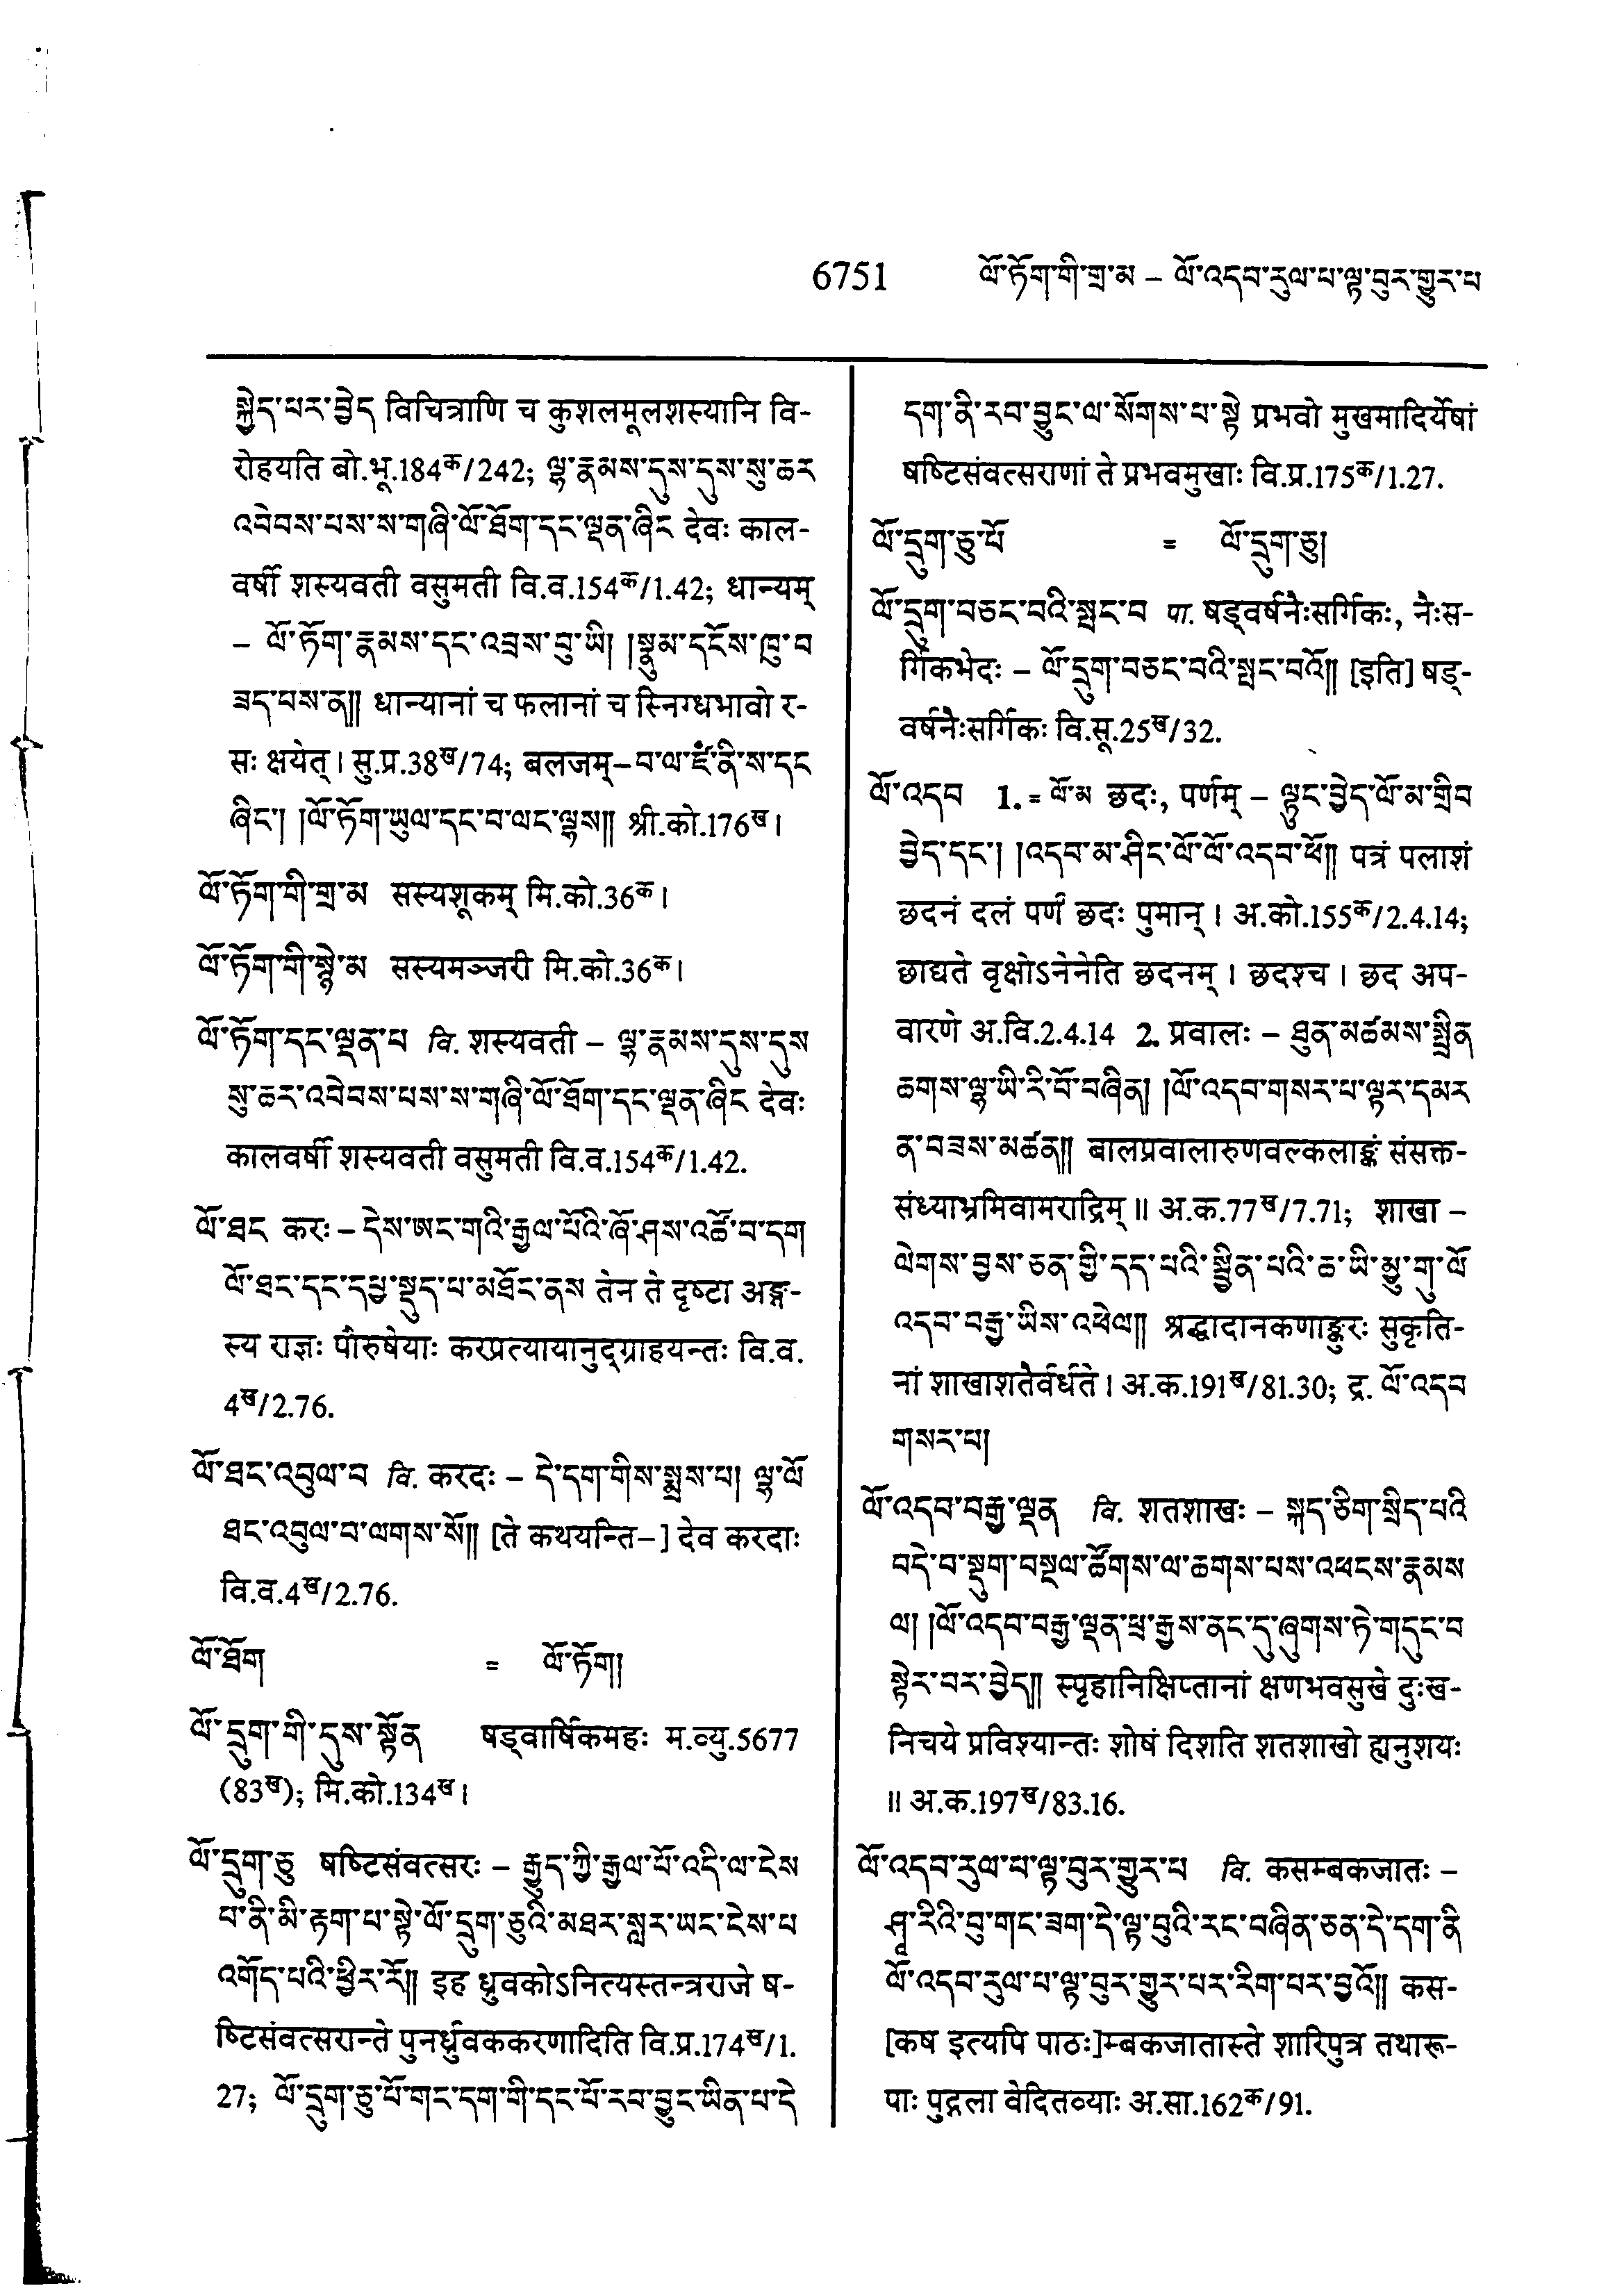 6751 ལོ་ཏོག་གི་གྲ་མ – ལོ་འདབ་རུལ་པ་ལྟ་བུར་གྱུར་པ
སྐྱེད་པར་བྱེད विचित्राणि च कुशलमूलशस्यानि वि-
रोहयति बो.भू.184क/242; ལྷ་རྣམས་དུས་དུས་སུ་ཆར
འབེབས་པས་ས་གཞི་ལོ་ཐོག་དང་ལྡན་ཞིང देवः काल-
वर्षी शस्यवती वसुमती वि.व.154क/1.42; धान्यम्
– ལོ་ཏོག་རྣམས་དང་འབྲས་བུ་ཡི། །སྣུམ་དངོས་ཁུ་བ
ཟད་པས་ན༎ धान्यानां च फलानां च स्निग्धभावो र-
सः क्षयेत्। सु.प्र.38ख/74; बलजम्–བ་ལ་ཛཾ་ནི་ས་དང
ཞིང་། །ལོ་ཏོག་ཡུལ་དང་བ་ལང་ལྷས༎ श्री.को.176ख।
ལོ་ཏོག་གི་གྲ་མ सस्यशूकम् मि.को.36क।
ལོ་ཏོག་གི་སྙེ་མ सस्यमञ्जरी मि.को.36क।
ལོ་ཏོག་དང་ལྡན་པ वि. शस्यवती – ལྷ་རྣམས་དུས་དུས
སུ་ཆར་འབེབས་པས་ས་གཞི་ལོ་ཐོག་དང་ལྡན་ཞིང देवः
कालवर्षी शस्यवती वसुमती वि.व.154क/1.42.
ལོ་ཐང करः – དེས་ཨང་གའི་རྒྱལ་པོའི་ཞོ་ཤས་འཚོ་བ་དག
ལོ་ཐང་དང་དཔྱ་སྡུད་པ་མཐོང་ནས तेन ते दृष्टा अङ्ग-
स्य राज्ञः पौरुषेयाः करप्रत्यायानुद्ग्राहयन्तः वि.व.
4ख/2.76.
ལོ་ཐང་འབུལ་བ वि. करदः – དེ་དག་གིས་སྨྲས་པ། ལྷ་ལོ
ཐང་འབུལ་བ་ལགས་སོ༎ [ते कथयन्ति–] देव करदाः
वि.व.4ख/2.76.
ལོ་ཐོག = ལོ་ཏོག།
ལོ་དྲུག་གི་དུས་སྟོན षड्वार्षिकमहः म.व्यु.5677
(83ख); मि.को.134ख।
ལོ་དྲུག་ཅུ षष्टिसंवत्सरः – རྒྱུད་ཀྱི་རྒྱལ་པོ་འདི་ལ་ངེས
པ་ནི་མི་རྟག་པ་སྟེ་ལོ་དྲུག་ཅུའི་མཐར་སླར་ཡང་ངེས་པ
འགོད་པའི་ཕྱིར་རོ༎ इह ध्रुवकोऽनित्यस्तन्त्रराजे ष-
ष्टिसंवत्सरान्ते पुनर्ध्रुवककरणादिति वि.प्र.174ख/1.
27; ལོ་དྲུག་ཅུ་པོ་གང་དག་གི་དང་པོ་རབ་བྱུང་ཡིན་པ་དེ
དག་ནི་རབ་བྱུང་ལ་སོགས་པ་སྟེ प्रभवो मुखमादिर्येषां
षष्टिसंवत्सराणां ते प्रभवमुखाः वि.प्र.175क/1.27.
ལོ་དྲུག་ཅུ་པོ = ལོ་དྲུག་ཅུ།
ལོ་དྲུག་བཅང་བའི་སྤང་བ पा. षड्वर्षनैःसर्गिकः, नैःस-
र्गिकभेदः – ལོ་དྲུག་བཅང་བའི་སྤང་བའོ༎ [इति] षड्-
वर्षनैःसर्गिकः वि.सू.25ख/32.
ལོ་འདབ 1. = ལོ་མ छदः, पर्णम् – ལྟུང་བྱེད་ལོ་མ་གྲིབ
བྱེད་དང་། །འདབ་མ་ཤིང་ལོ་ལོ་འདབ་ཕོ༎ पत्रं पलाशं
छदनं दलं पर्णं छदः पुमान्। अ.को.155क/2.4.14;
छाद्यते वृक्षोऽनेनेति छदनम्। छदश्च। छद अप-
वारणे अ.वि.2.4.14 2. प्रवालः – ཐུན་མཚམས་སྤྲིན
ཆགས་ལྷ་ཡི་རི་བོ་བཞིན། །ལོ་འདབ་གསར་པ་ལྟར་དམར
ན་བཟས་མཚན༎ बालप्रवालारुणवल्कलाङ्कं संसक्त-
संध्याभ्रमिवामराद्रिम्॥ अ.क.77ख/7.71; शाखा –
ལེགས་བྱས་ཅན་གྱི་དད་པའི་སྦྱིན་པའི་ཆ་ཡི་མྱུ་གུ་ལོ
འདབ་བརྒྱ་ཡིས་འཕེལ༎ श्रद्धादानकणाङ्कुरः सुकृति-
नां शाखाशतैर्वर्धते। अ.क.191ख/81.30; द्र. ལོ་འདབ
གསར་པ།
ལོ་འདབ་བརྒྱ་ལྡན वि. शतशाखः – སྐད་ཅིག་སྲིད་པའི
བདེ་བ་སྡུག་བསྔལ་ཚོགས་ལ་ཆགས་པས་འཕངས་རྣམས
ལ། །ལོ་འདབ་བརྒྱ་ལྡན་ཕྲ་རྒྱས་ནང་དུ་ཞུགས་ཏེ་གདུང་བ
སྟེར་བར་བྱེད༎ स्पृहानिक्षिप्तानां क्षणभवसुखे दुःख-
निचये प्रविश्यान्तः शोषं दिशति शतशाखो ह्यनुशयः
॥ अ.क.197ख/83.16.
ལོ་འདབ་རུལ་པ་ལྟ་བུར་གྱུར་པ वि. कसम्बकजातः –
ཤཱ་རིའི་བུ་གང་ཟག་དེ་ལྟ་བུའི་རང་བཞིན་ཅན་དེ་དག་ནི
ལོ་འདབ་རུལ་པ་ལྟ་བུར་གྱུར་པར་རིག་པར་བྱའོ༎ कस-
[कष इत्यपि पाठः]म्बकजातास्ते शारिपुत्र तथारू-
पाः पुद्गला वेदितव्याः अ.सा.162क/91.